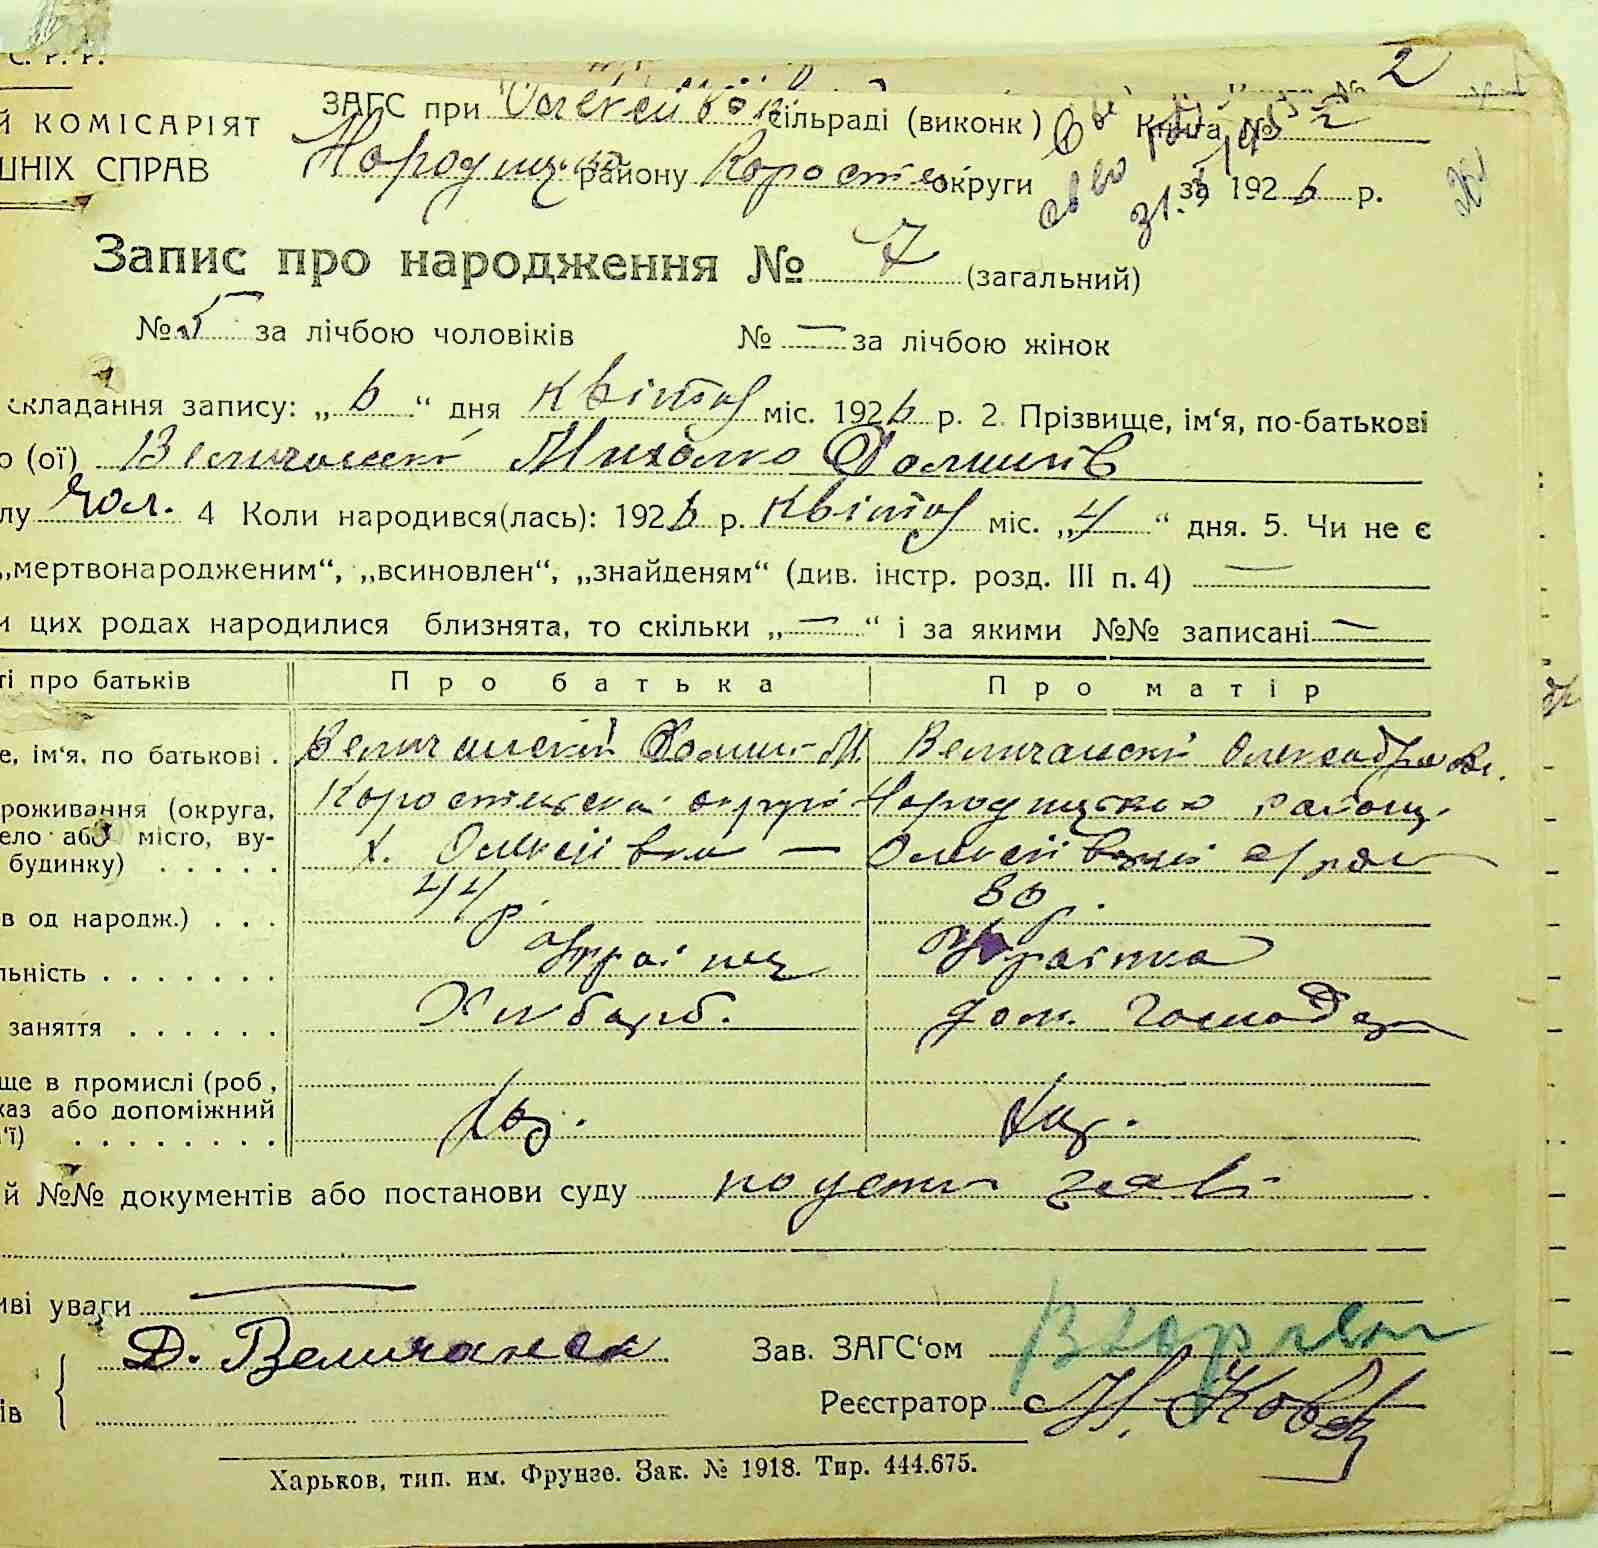 С. Р. Р.
Й КОМІСАРІЯТ
ШНІХ СПРАВ
ЗАГС при сільраді (виконк.) Книга № 2
Народиц. району Коростен. округи за 1926 р.
Запис про народження № 7 (загальний)
№ 5 за лічбою чоловіків № — за лічбою жінок
складання запису: „6“ дня квітня міс. 1926 р. 2. Прізвище, ім‘я, по-батькові
о (ої) Величанский Михалко
лу чол. 4 Коли народився(лась): 1926 р. квітня міс. „4“ дня. 5. Чи не є
„мертвонародженим“, „всиновлен“, „знайденям“ (див. інстр. розд. III п. 4) —
и цих родах народилися близнята, то скільки „—“ і за якими №№ записані —
ті про батьків Про батька Про матір
е, ім‘я, по батькові . Величанский М. Величанскі Олександра
роживання (округа, Коростенська округа Народицького району
ело або місто, ву- х. Олексіївка — Олексіївскі
будинку) . . . . .
в од народж.) . . . 44 р. 30 р.
льність . . . . . . . Українец Українка
заняття . . . . . . Хлибороб. дом. господар
ще в промислі (роб.,
каз або допоміжний
‘ї) . . . . . . . . Хоз.
й №№ документів або постанови суду по устни заяві
иві уваги —
Д. Величанск Зав. ЗАГС‘ом
ів Реєстратор
Харьков, тип. им. Фрунзе. Зак. № 1918. Тир. 444.675.